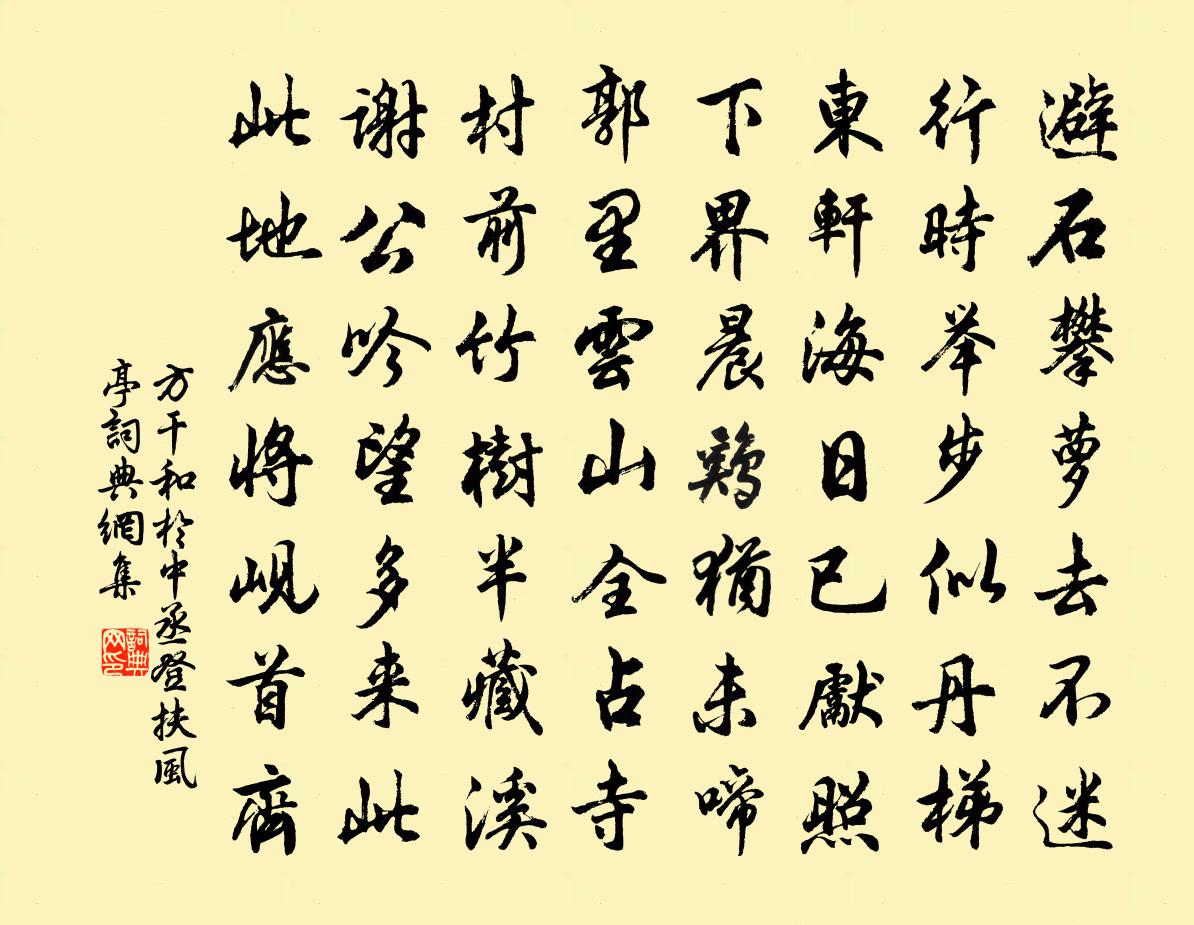 避石攀萝去不迷
行時举步似丹梯
東軒海日已獻照
下界晨鷄猶未啼
郭里雲山全占寺
村前竹樹半藏溪
謝公吟望多来此
此地應將峴首齊
方干和於中丞登扶風
亭詞典網集
詞典网印